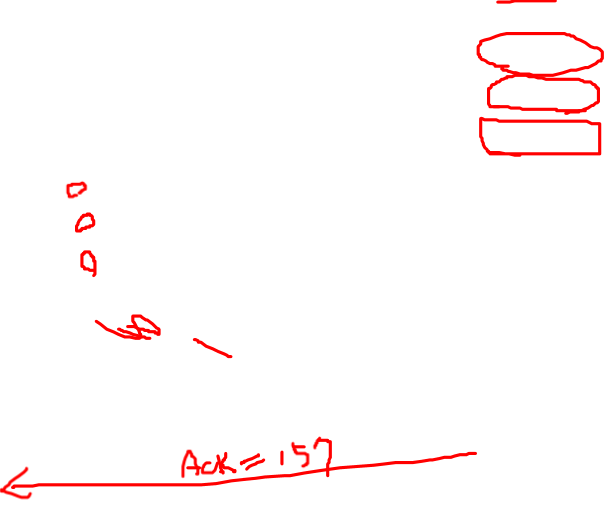 Ack = 157